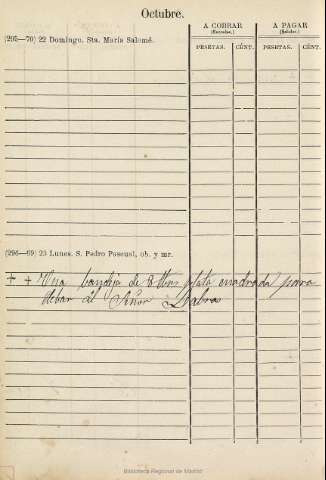 Octubre.
A COBRAR
(Entradas.)
A PAGAR
(Salidas.)
PESETAS.
CÉNT.
PESETAS.
CÉNT.
(295—70) 22 Domingo. Sta. María Salomé.
(296—69) 23 Lunes. S. Pedro Pascual, ob. y mr.
+ + Una bandeja de plata cuadrada para
llebar al Señor
Biblioteca Regional de Madrid